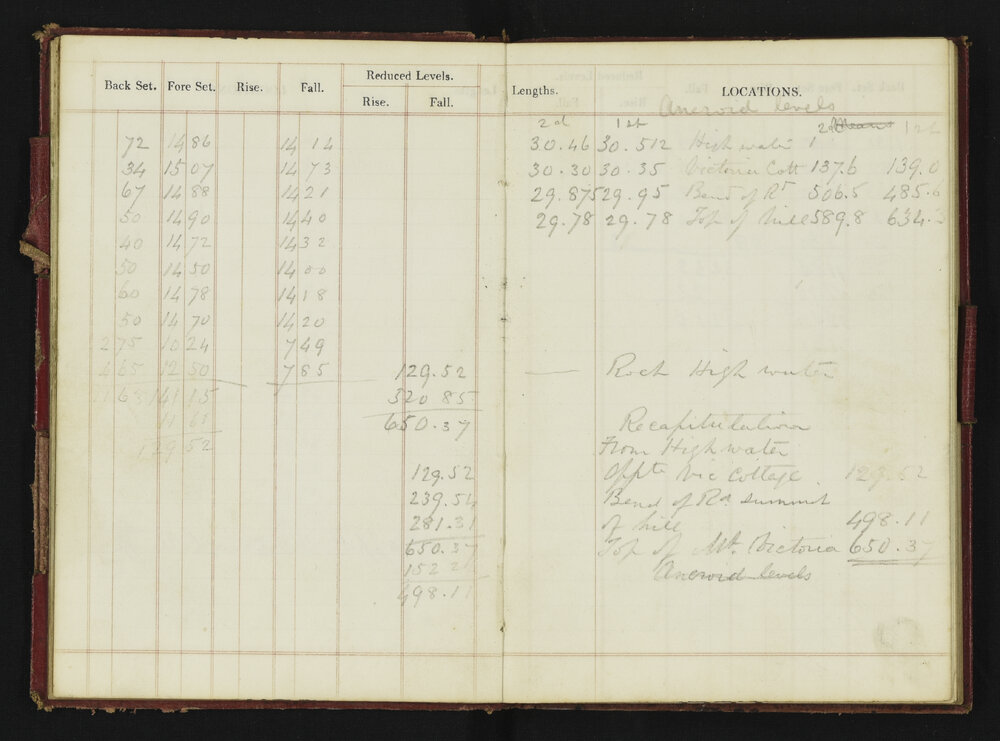 Back Set. Fore Set. Rise. Fall. Reduced Levels. Rise. Fall.
72 14 86 14 14
34 15 07 14 73
67 14 88 14 21
50 14 90 14 40
40 14 72 14 32
50 14 50 14 00
60 14 78 14 18
50 14 70 14 20
275 10 24 7 49
465 12 50 7 85 129.52
520 85
650.37
129 52
129.52
239.54
281.31
650.37
152 2
498.11
Lengths. LOCATIONS.
Aneroid levels
2d 1st 2d Mean 1st
30.46 30.512 High water 1
30.30 30.35 Victoria Cott 137.6 139.0
29.875 29.95 Bend of Rd 506.5 485.6
29.78 29.78 Top of hill 589.8 634.
Rock High water
Recapitulation
From High water
Oppte Vic Cottage 129.52
Bend of Rd summit
of hill 498.11
Top of Mt. Victoria 650.37
Aneroid levels